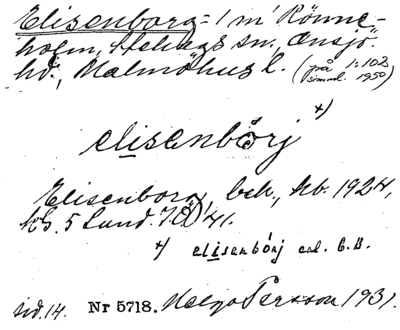 Elisenborg = 1 m Rönne-
holm, Stehags sn, Onsjö
hd., Malmöhus l. (på 1:102
simml. 1950)
x)
elisenbårj
Elisenborg, beb., hb. 1924,
5 Lund. 41.
x) elisenbórj enl.
sid. 14. Nr 5718. Helge Persson 1931.